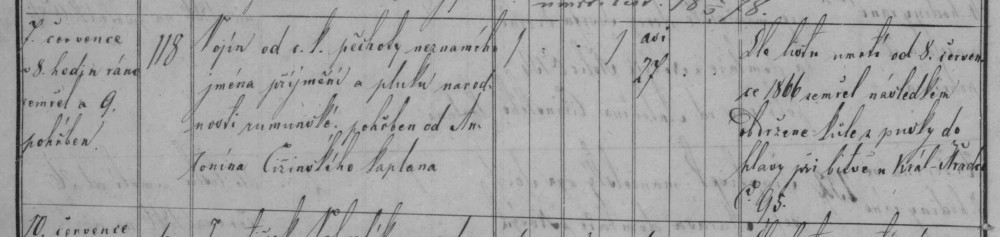 7. července
o 8. hodin ráno
zemřel a 9.
pohřben.
118
Vojín od c. k. pěchoty neznamého
jména příjmění a pluku narod-
nosti rumunské. pohřben od An-
tonína Čižinského kaplana
1 . . 1
asi
27
Dle listu úmrtí od 8. červen-
ce 1866 zemřel následkem
obdržené kule z pušky do
hlavy při bitvě u Král. Hradce
Č. 95.
10. července